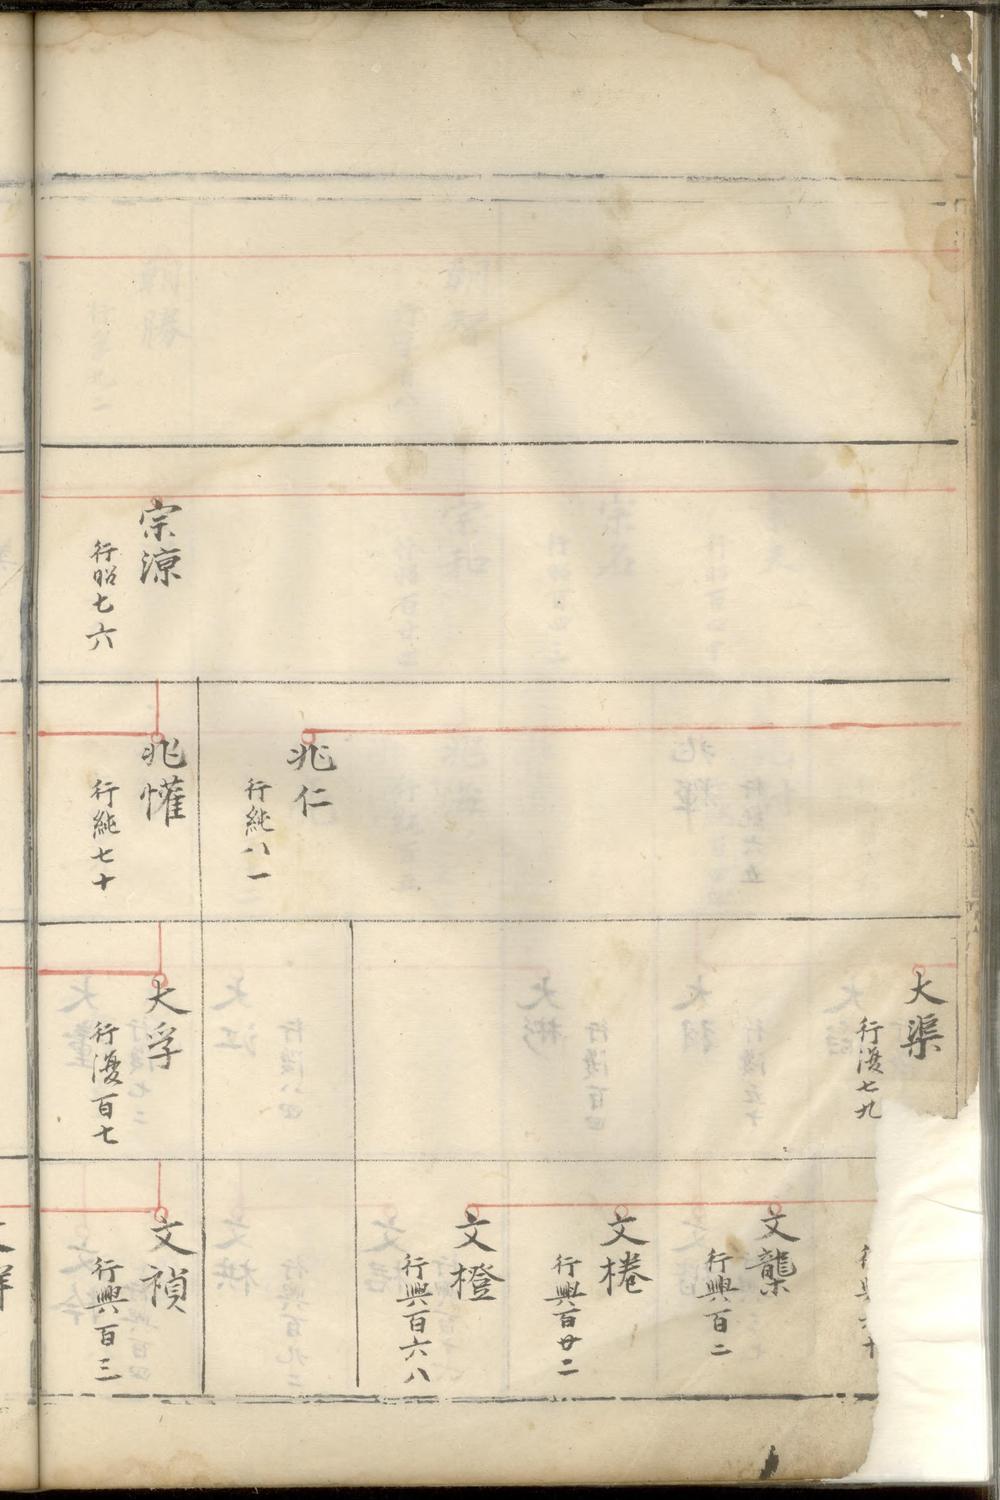 宗涼
行昭七六
兆仁
行純八一
兆懽
行純七十
大渠
行濩七九
大孚
行濩百七
文櫳
行興百二
文棬
行興百廿二
文橙
行興百六八
文禎
行興百三